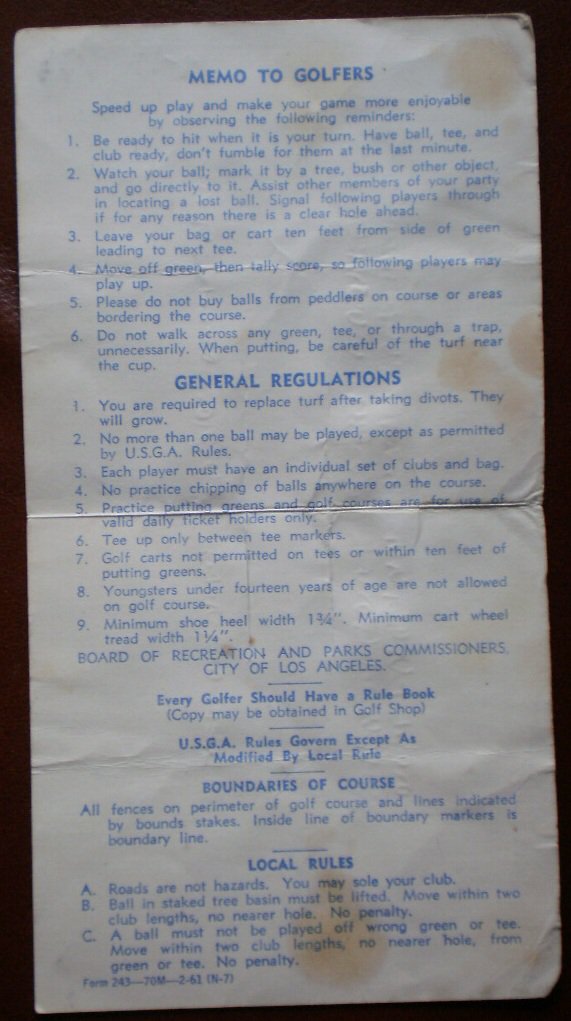 MEMO TO GOLFERS
Speed up play and make your game more enjoyable
by observing the following reminders:
1. Be ready to hit when it is your turn. Have ball, tee, and
club ready, don't fumble for them at the last minute.
2. Watch your ball; mark it by a tree, bush or other object,
and go directly to it. Assist other members of your party
in locating a lost ball. Signal following players through
if for any reason there is a clear hole ahead.
3. Leave your bag or cart ten feet from side of green
leading to next tee.
4. Move off green, then tally score, so following players may
play up.
5. Please do not buy balls from peddlers on course or areas
bordering the course.
6. Do not walk across any green, tee, or through a trap,
unnecessarily. When putting, be careful of the turf near
the cup.
GENERAL REGULATIONS
1. You are required to replace turf after taking divots. They
will grow.
2. No more than one ball may be played, except as permitted
by U.S.G.A. Rules.
3. Each player must have an individual set of clubs and bag.
4. No practice chipping of balls anywhere on the course.
5. Practice putting greens and golf courses are for use of
valid daily ticket holders only.
6. Tee up only between tee markers.
7. Golf carts not permitted on tees or within ten feet of
putting greens.
8. Youngsters under fourteen years of age are not allowed
on golf course.
9. Minimum shoe heel width 1¾". Minimum cart wheel
tread width 1¼".
BOARD OF RECREATION AND PARKS COMMISSIONERS,
CITY OF LOS ANGELES.
Every Golfer Should Have a Rule Book
(Copy may be obtained in Golf Shop)
U.S.G.A. Rules Govern Except As
Modified By Local Rule
BOUNDARIES OF COURSE
All fences on perimeter of golf course and lines indicated
by bounds stakes. Inside line of boundary markers is
boundary line.
LOCAL RULES
A. Roads are not hazards. You may sole your club.
B. Ball in staked tree basin must be lifted. Move within two
club lengths, no nearer hole. No penalty.
C. A ball must not be played off wrong green or tee.
Move within two club lengths, no nearer hole, from
green or tee. No penalty.
Form 243—70M—2-61 (N-7)